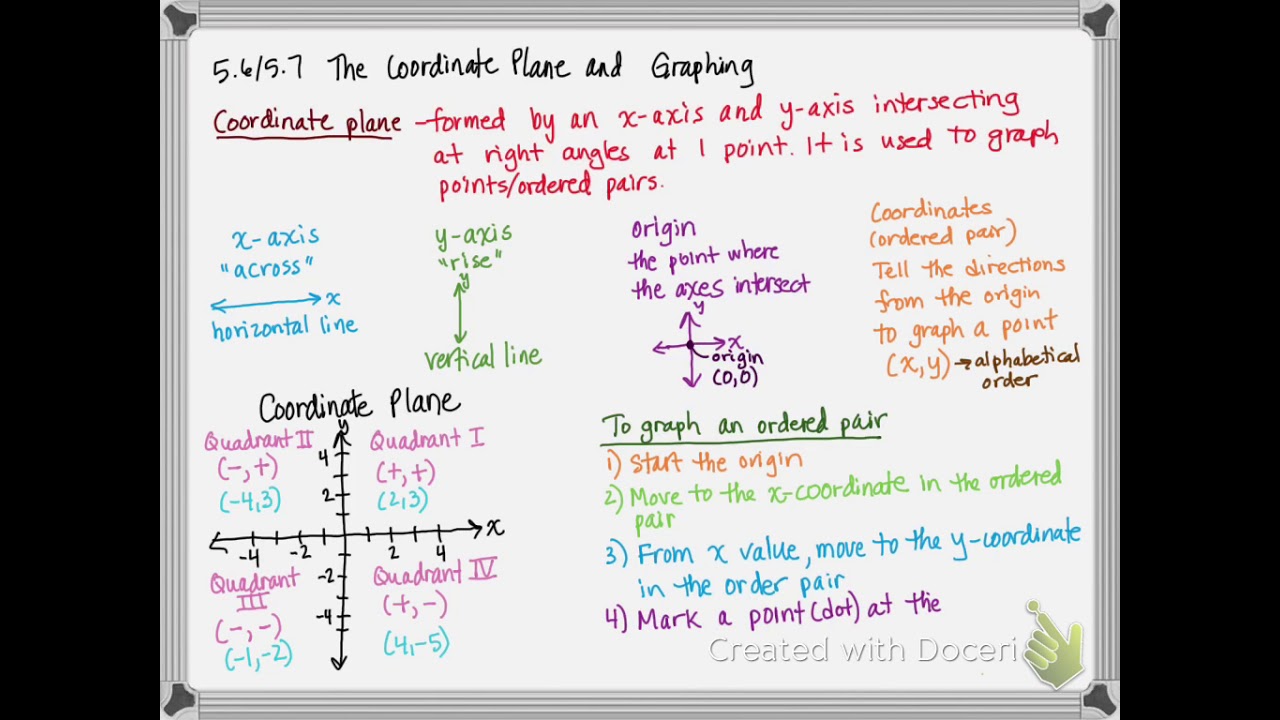 5.6/5.7 The Coordinate Plane and Graphing
Coordinate plane – formed by an x-axis and y-axis intersecting
at right angles at 1 point. It is used to graph
points/ordered pairs.
x-axis
"across"
x
horizontal line
y-axis
"rise"
y
vertical line
origin
the point where
the axes intersect
y
x
origin
(0,0)
Coordinates
(ordered pair)
Tell the directions
from the origin
to graph a point
(x,y) → alphabetical
order
Coordinate Plane
y
Quadrant II
(-,+)
(-4,3)
Quadrant I
(+,+)
(2,3)
4
2
x
-4
-2
2
4
-2
-4
Quadrant
III
(-,-)
(-1,-2)
Quadrant IV
(+,-)
(4,-5)
To graph an ordered pair
1) Start the origin
2) Move to the x-coordinate in the ordered
pair
3) From x value, move to the y-coordinate
in the order pair
4) Mark a point (dot) at the
Created with Doceri